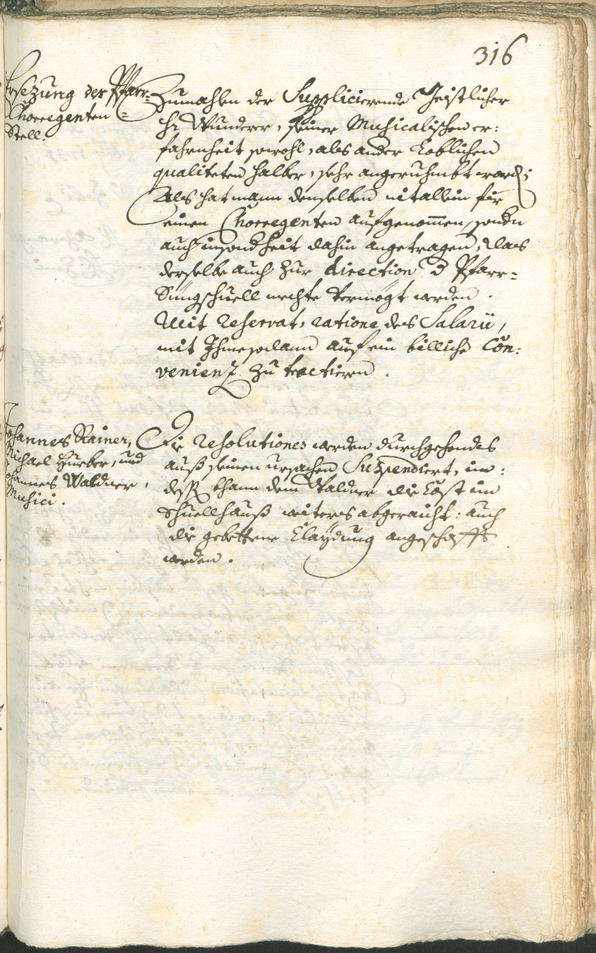 316
Ersezung der Pfarr-
Chorregenten-
Stell.
Zumahlen der Supplicierende Geistlicher
H: Wunderer, seiner Musicalischen er:
fahrnheit sowohl, als ander Loblichen
qualiteten halber, sehr angeruhmbt word:
Als hat mann denselben nit allein für
einen Chorregenten aufgenommen, sondern
auch insonderheit dahin angetragen, das
derselbe auch zur direction d Pfarr-
Singschuell mechte vermögt werden.
Mit reservat, ratione des Salarii,
mit Ihme sodann auf ein billiche Con:
venienz zu tractieren.
Johannes Rainer,
Michael Hueber, und
Johannes Waldner,
Musici.
Die resolutiones werden durchgehendes
auß seinen ursachen Suspendiert, in:
dess khann dem Waldner die Cost im
Schuellhauß weiters abgeraicht: auch
die gebettene Claydung angeschafft
werden.